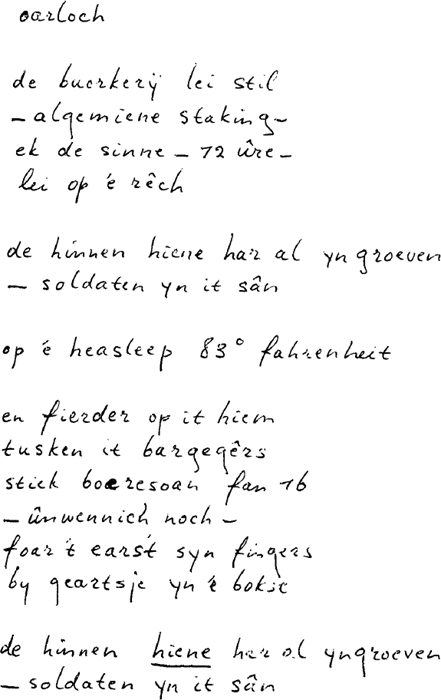 oarloch
de buorkerij lei stil
– algemiene staking –
ek de sinne – 12 ûre –
lei op 'e rêch
de hinnen hiene har al yngroeven
– soldaten yn it sân
op 'e heasleep 83° fahrenheit
en fierder op it hiem
tusken it bargegêrs
stiek boeresoan fan 16
– ûnwennich noch –
foar 't earst syn fingers
by geartsje yn 'e bokse
de hinnen hiene har al yngroeven
– soldaten yn it sân